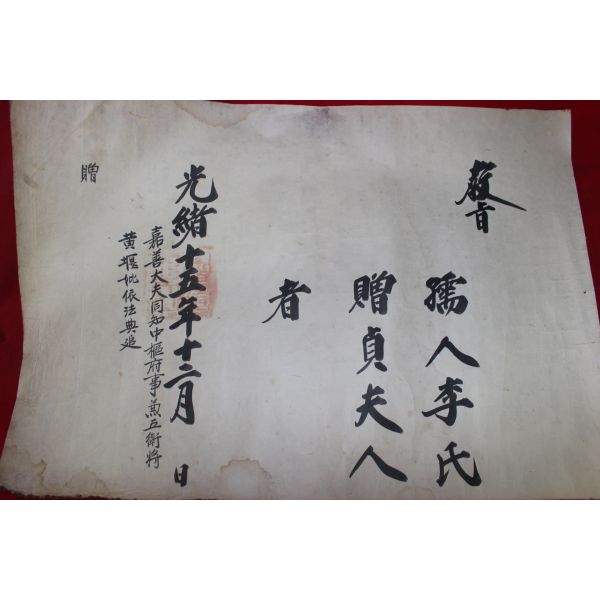 敎旨
孺人李氏
贈貞夫人
者
光緖十五年十二月 日
嘉善大夫同知中樞府事兼五衛將
黃堰妣依法典追
贈